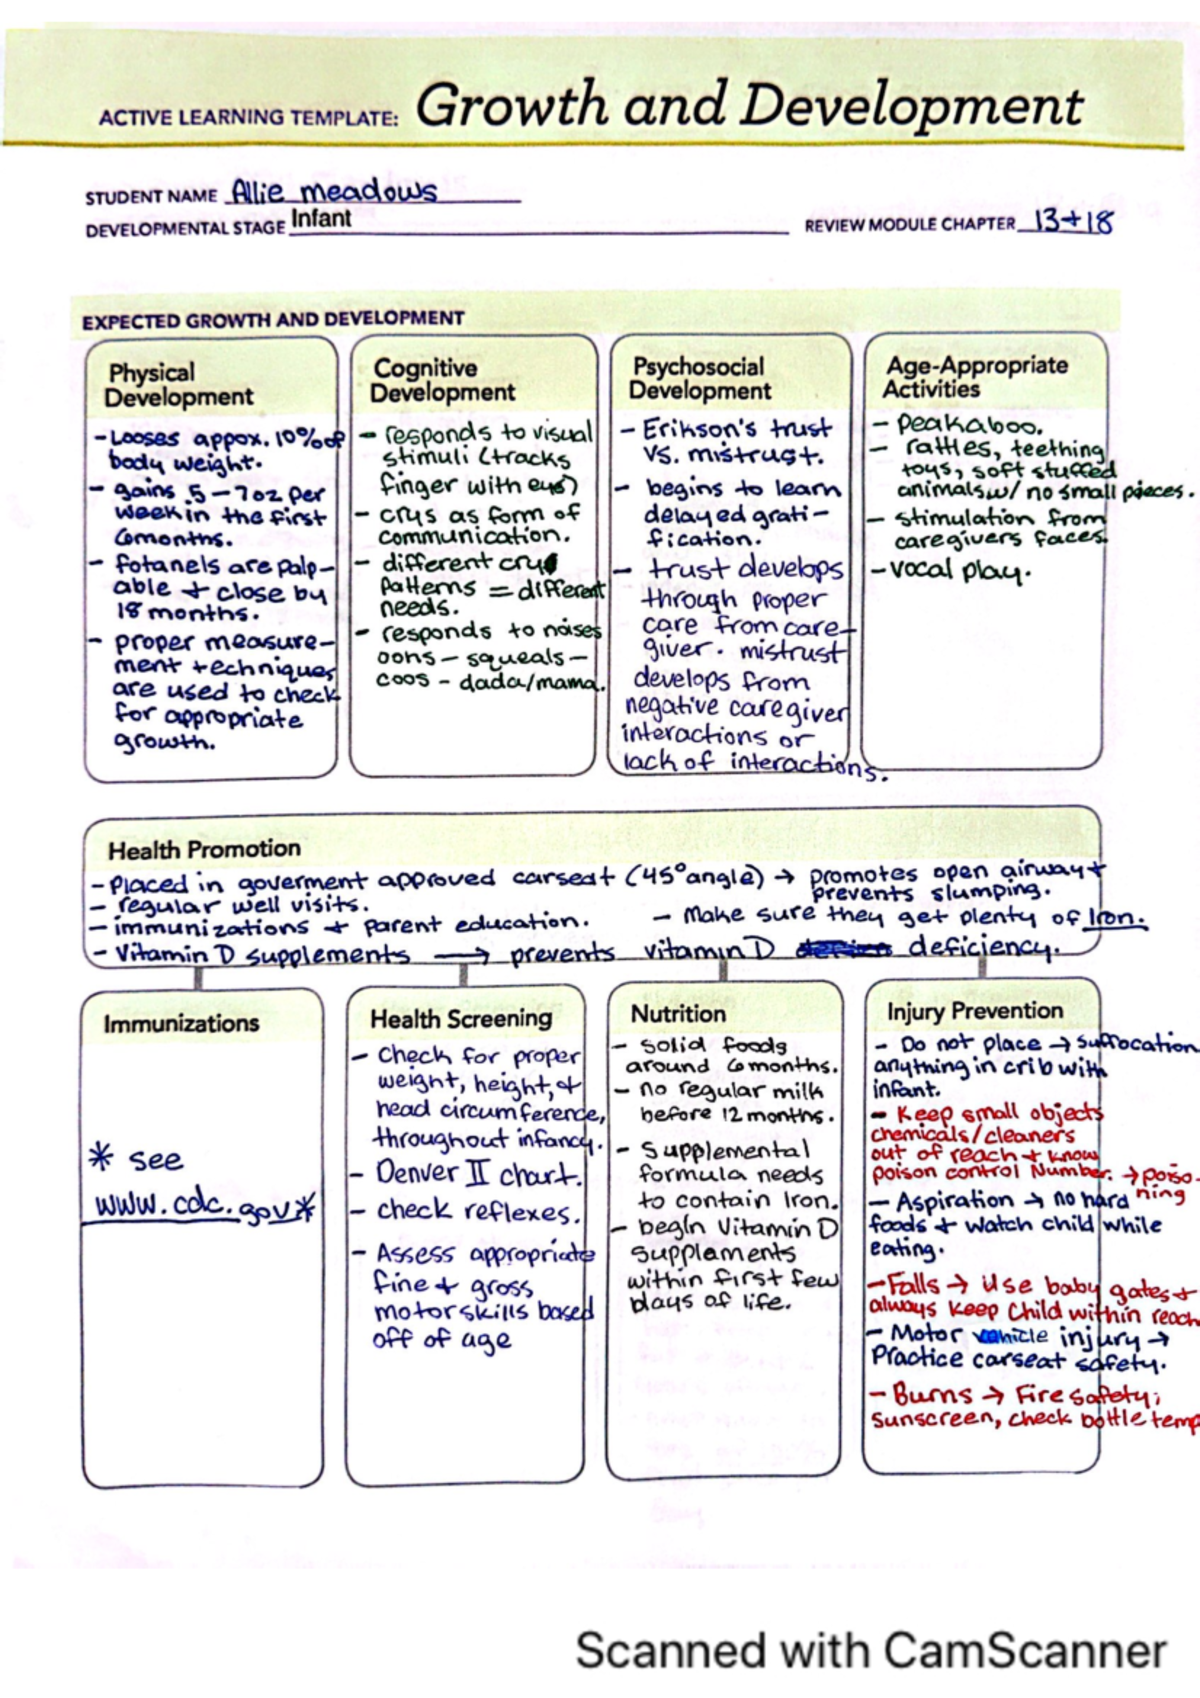 ACTIVE LEARNING TEMPLATE: Growth and Development
STUDENT NAME Allie meadows
DEVELOPMENTAL STAGE Infant
REVIEW MODULE CHAPTER 13+18
EXPECTED GROWTH AND DEVELOPMENT
Physical
Development
-Looses appox. 10% of
body weight.
- gains .5-7oz per
week in the first
6months.
- fotanels are palp-
able + close by
18 months.
- proper measure-
ment techniques
are used to check
for appropriate
growth.
Cognitive
Development
- responds to visual
stimuli (tracks
finger with eye)
- crys as form of
communication.
- different cry
patterns = different
needs.
- responds to noises
oohs - squeals -
coos - dada/mama.
Psychosocial
Development
- Erikson's trust
vs. mistrust.
- begins to learn
delayed grati-
fication.
- trust develops
through proper
care from care-
giver. mistrust
develops from
negative caregiver
interactions or
lack of interactions.
Age-Appropriate
Activities
- Peakaboo.
- rattles, teething
toys, soft stuffed
animals w/ no small pieces.
- stimulation from
caregivers faces.
-vocal play.
Health Promotion
- Placed in goverment approved carseat (45° angle) → promotes open airway +
prevents slumping.
- regular well visits.
- immunizations + Parent education.
- Make sure they get plenty of Iron.
- Vitamin D supplements → prevents vitamin D deficiency.
Immunizations
* see
www.cdc.gov*
Health Screening
- Check for proper
weight, height, +
head circumference,
throughout infancy.
- Denver II chart.
- check reflexes.
- Assess appropriate
fine + gross
motor skills based
off of age
Nutrition
- solid foods
around 6months.
- no regular milk
before 12 months.
- Supplemental
formula needs
to contain Iron.
- begin Vitamin D
supplements
within first few
days of life.
Injury Prevention
- Do not place → suffocation
anything in crib with
infant.
- Keep small objects
chemicals/cleaners
out of reach + know
poison control Number. → poiso-
ning
- Aspiration → no hard
foods + watch child while
eating.
-Falls → Use baby gates +
always keep child within reach
- Motor vehicle injury →
Practice carseat safety.
- Burns → Fire safety;
sunscreen, check bottle temp
Scanned with CamScanner